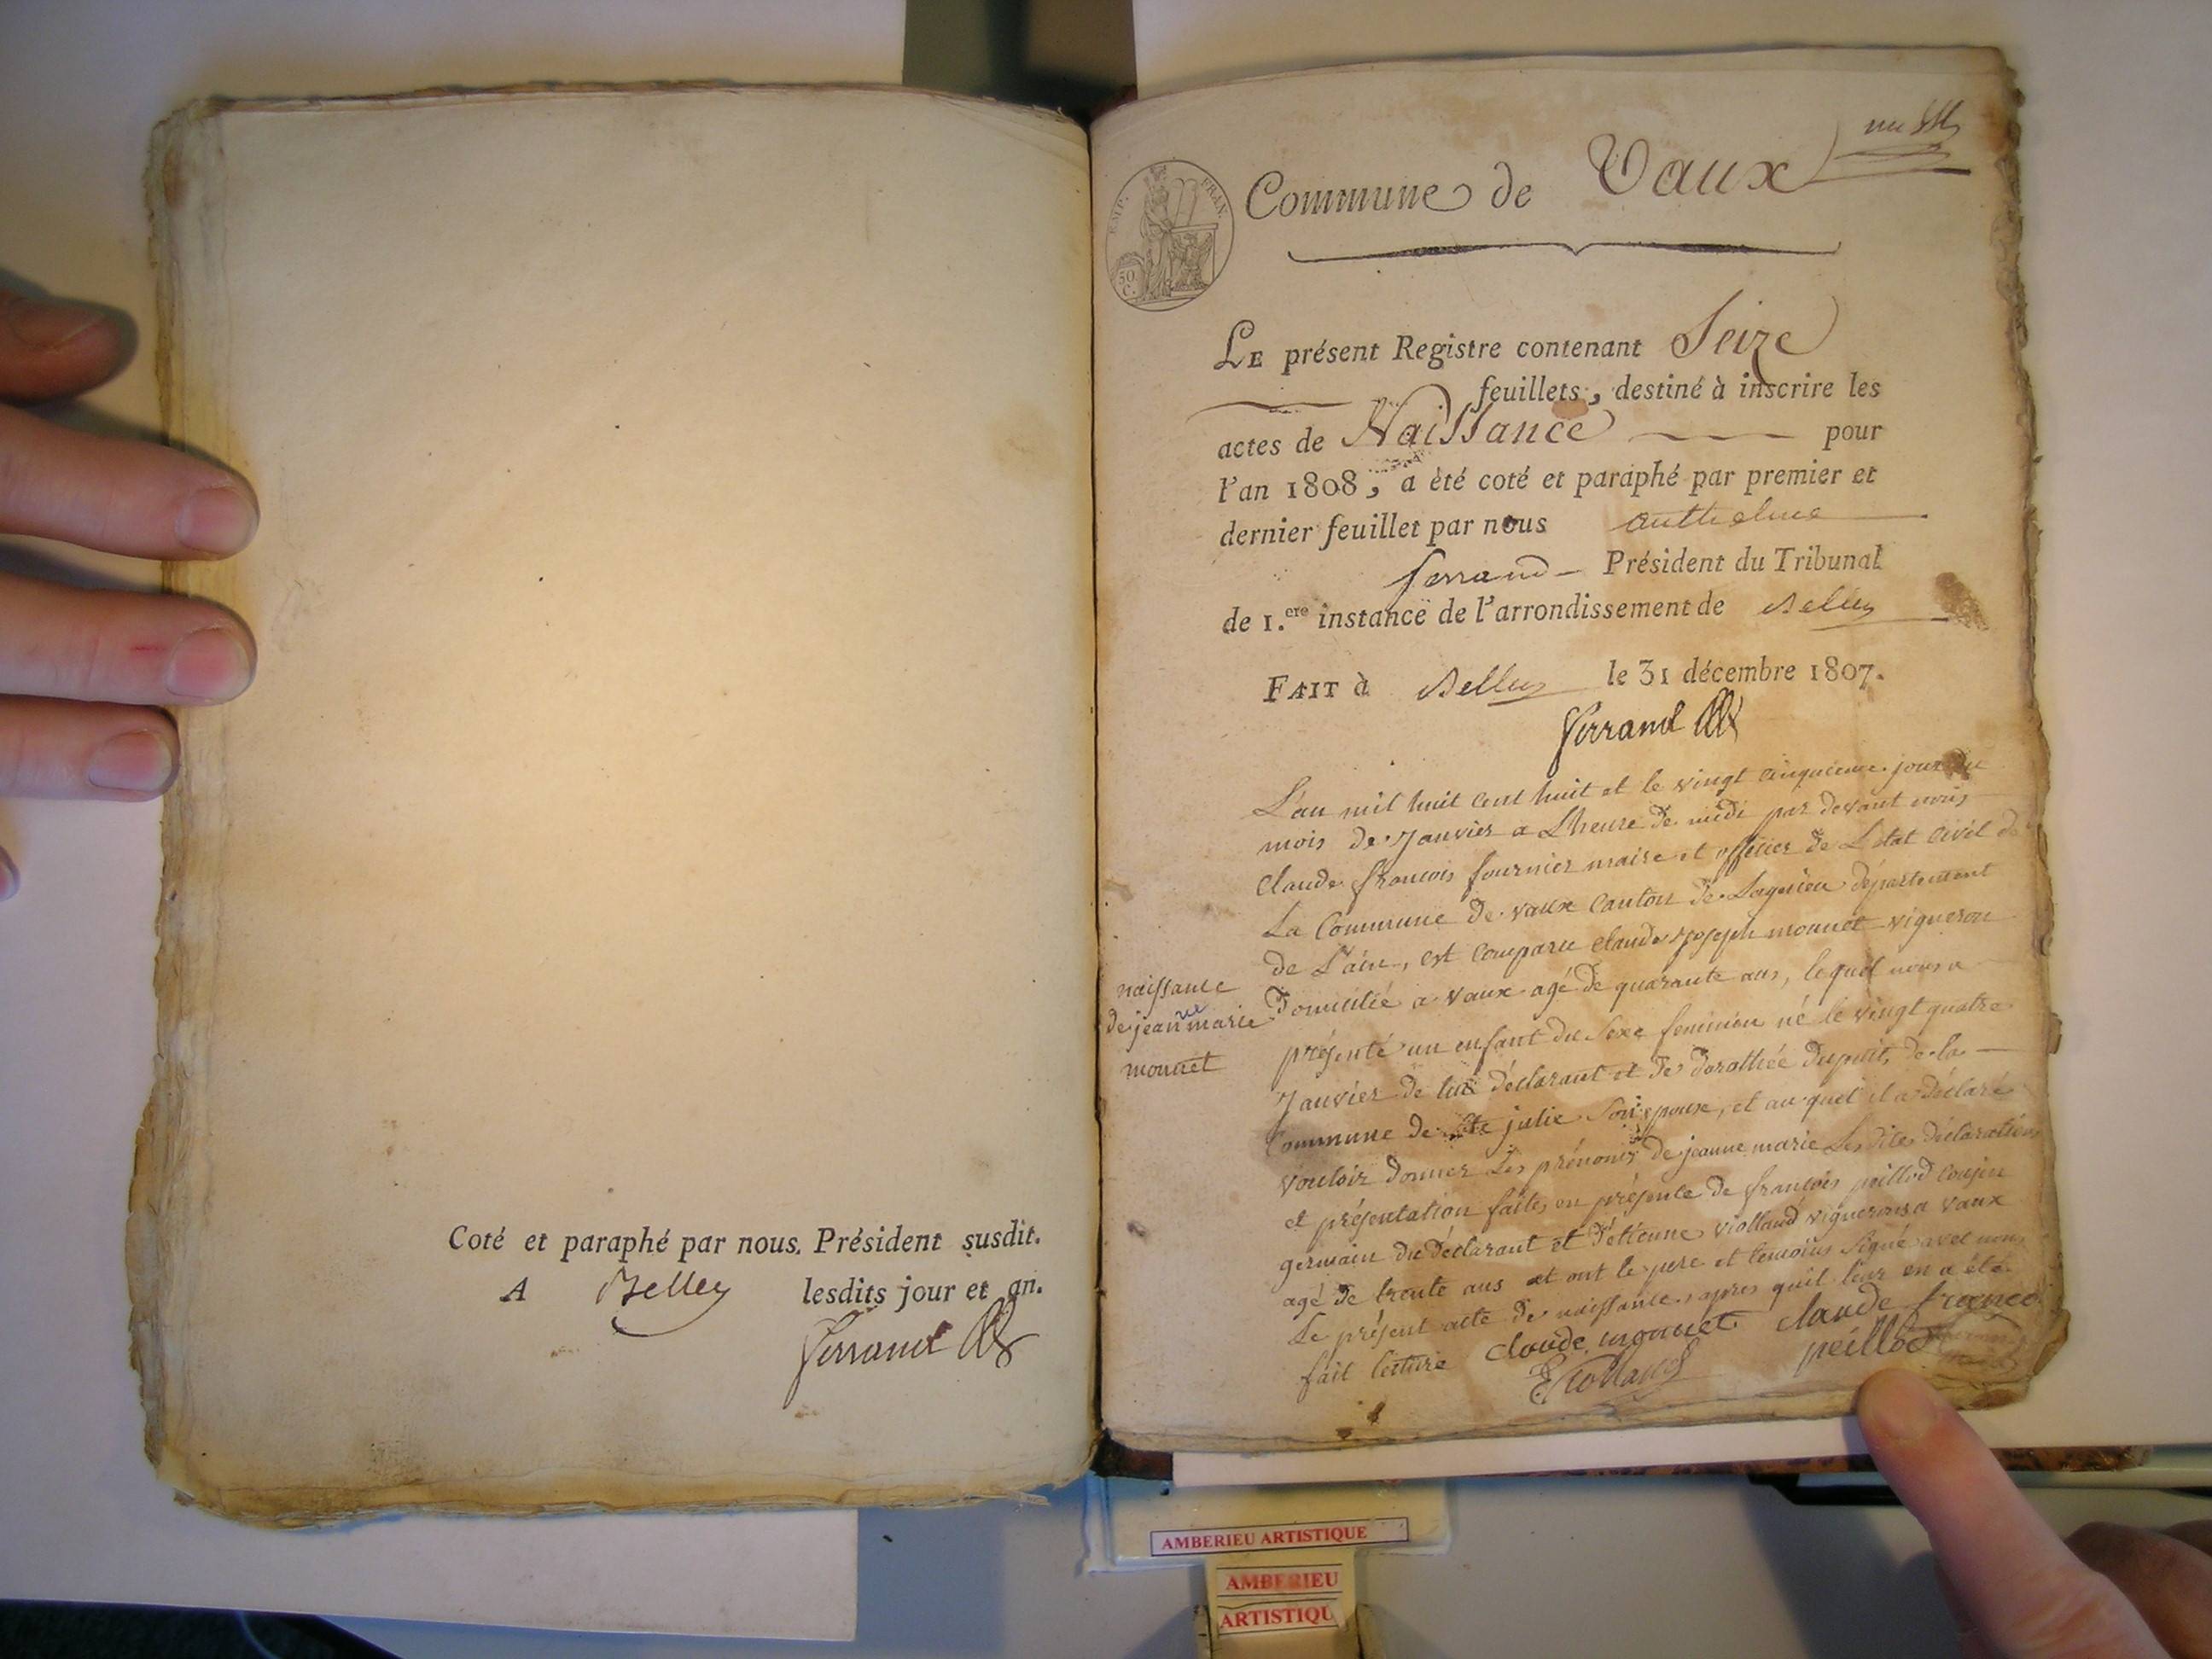 Coté et paraphé par nous, Président susdit.
A Belley lesdits jour et an.
Ferrand
EMP. FRAN.
50 C.
Commune de Vaux
LE présent Registre contenant Seize
feuillets, destiné à inscrire les
actes de Naissance pour
l'an 1808, a été coté et paraphé par premier et
dernier feuillet par nous anthelme
ferrand Président du Tribunal
de 1.ere instance de l'arrondissement de Belley
FAIT à Belley le 31 décembre 1807.
Ferrand
L'an mil huit cent huit et le vingt cinquieme jour du
mois de Janvier a L'heure de midi par devant nous
Claude francois fournier maire et officier de L'état civil de
La Commune de vaux Canton de Lagnieu département
de L'ain, est comparu claude joseph monnet vigneron
domicilié a vaux agé de quarante ans, lequel nous a
présenté un enfant du sexe feminin né le vingt quatre
Janvier de lui déclarant et de dorothée dupuit, de la
Commune de ste julie son epouse, et auquel il a déclaré
vouloir donner Les prénoms de jeanne marie Les dites déclaration
et présentation faites en présence de francois peillod cousin
germain du déclarant et d'étienne violland vignerons a vaux
agé de trente ans et ont le pere et temoins signé avec nous
Le présent acte de naissance, apres qu'il leur en a été
fait lecture claude monnet claude francois
E violland peillod
naissance
de jeanne marie
monnet
AMBERIEU ARTISTIQUE
AMBERIEU
ARTISTIQU